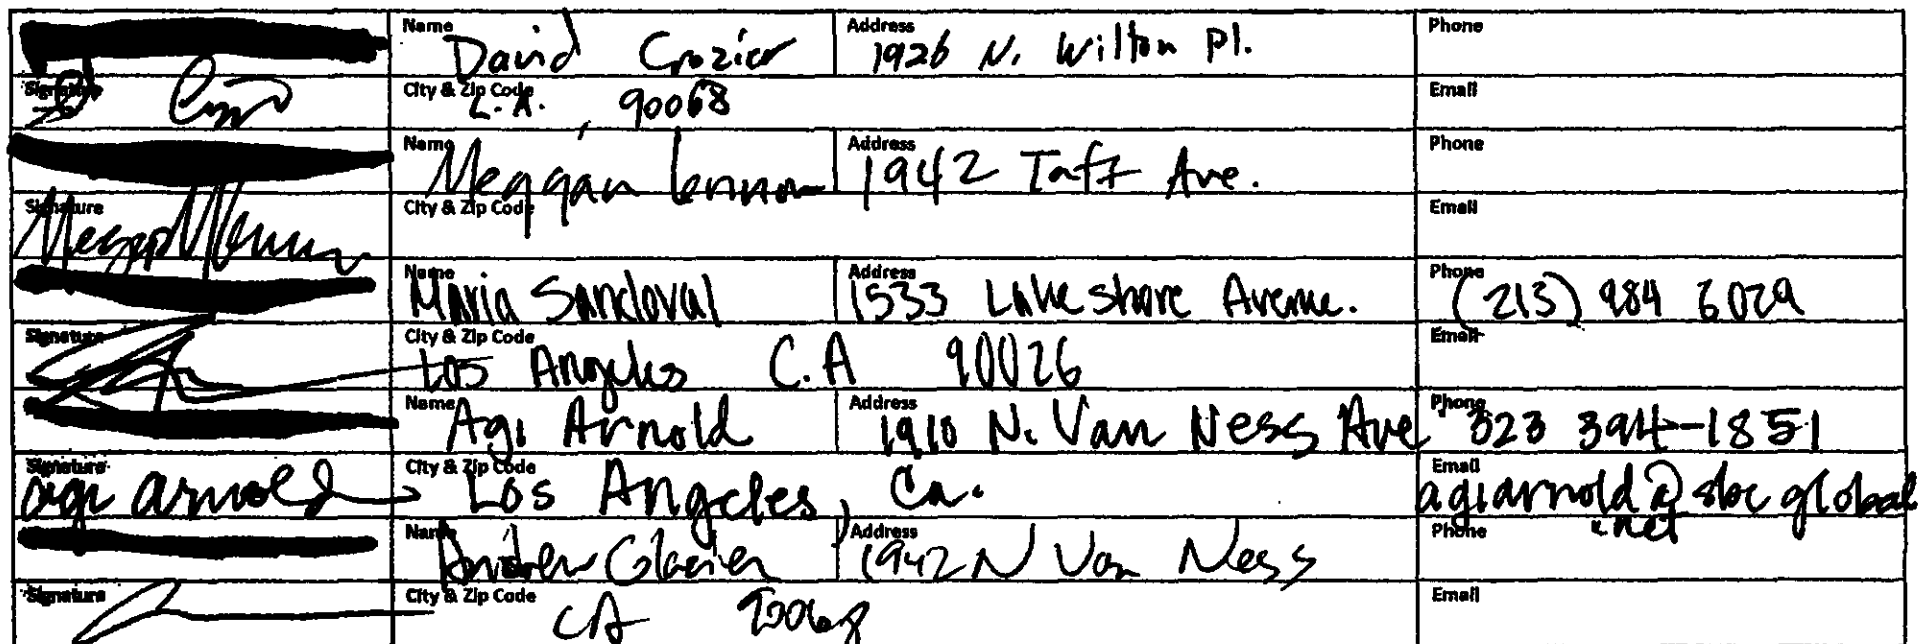 Name David Crozier Address 1926 N. Wilton Pl. Phone
Signature City & Zip Code L.A. 90068 Email
Name Meggan Lennon Address 1942 Taft Ave. Phone
Signature City & Zip Code Email
Name Maria Sandoval Address 1533 Lakeshore Avenue. Phone (213) 984 6029
Signature City & Zip Code Los Angeles C.A 90026 Email
Name Agi Arnold Address 1910 N. Van Ness Ave Phone 323 394-1851
Signature agi arnold City & Zip Code Los Angeles, Ca. Email agiarnold@sbcglobal
.net
Name Andrew Glazier Address 1942 N Van Ness Phone
Signature City & Zip Code CA 90068 Email